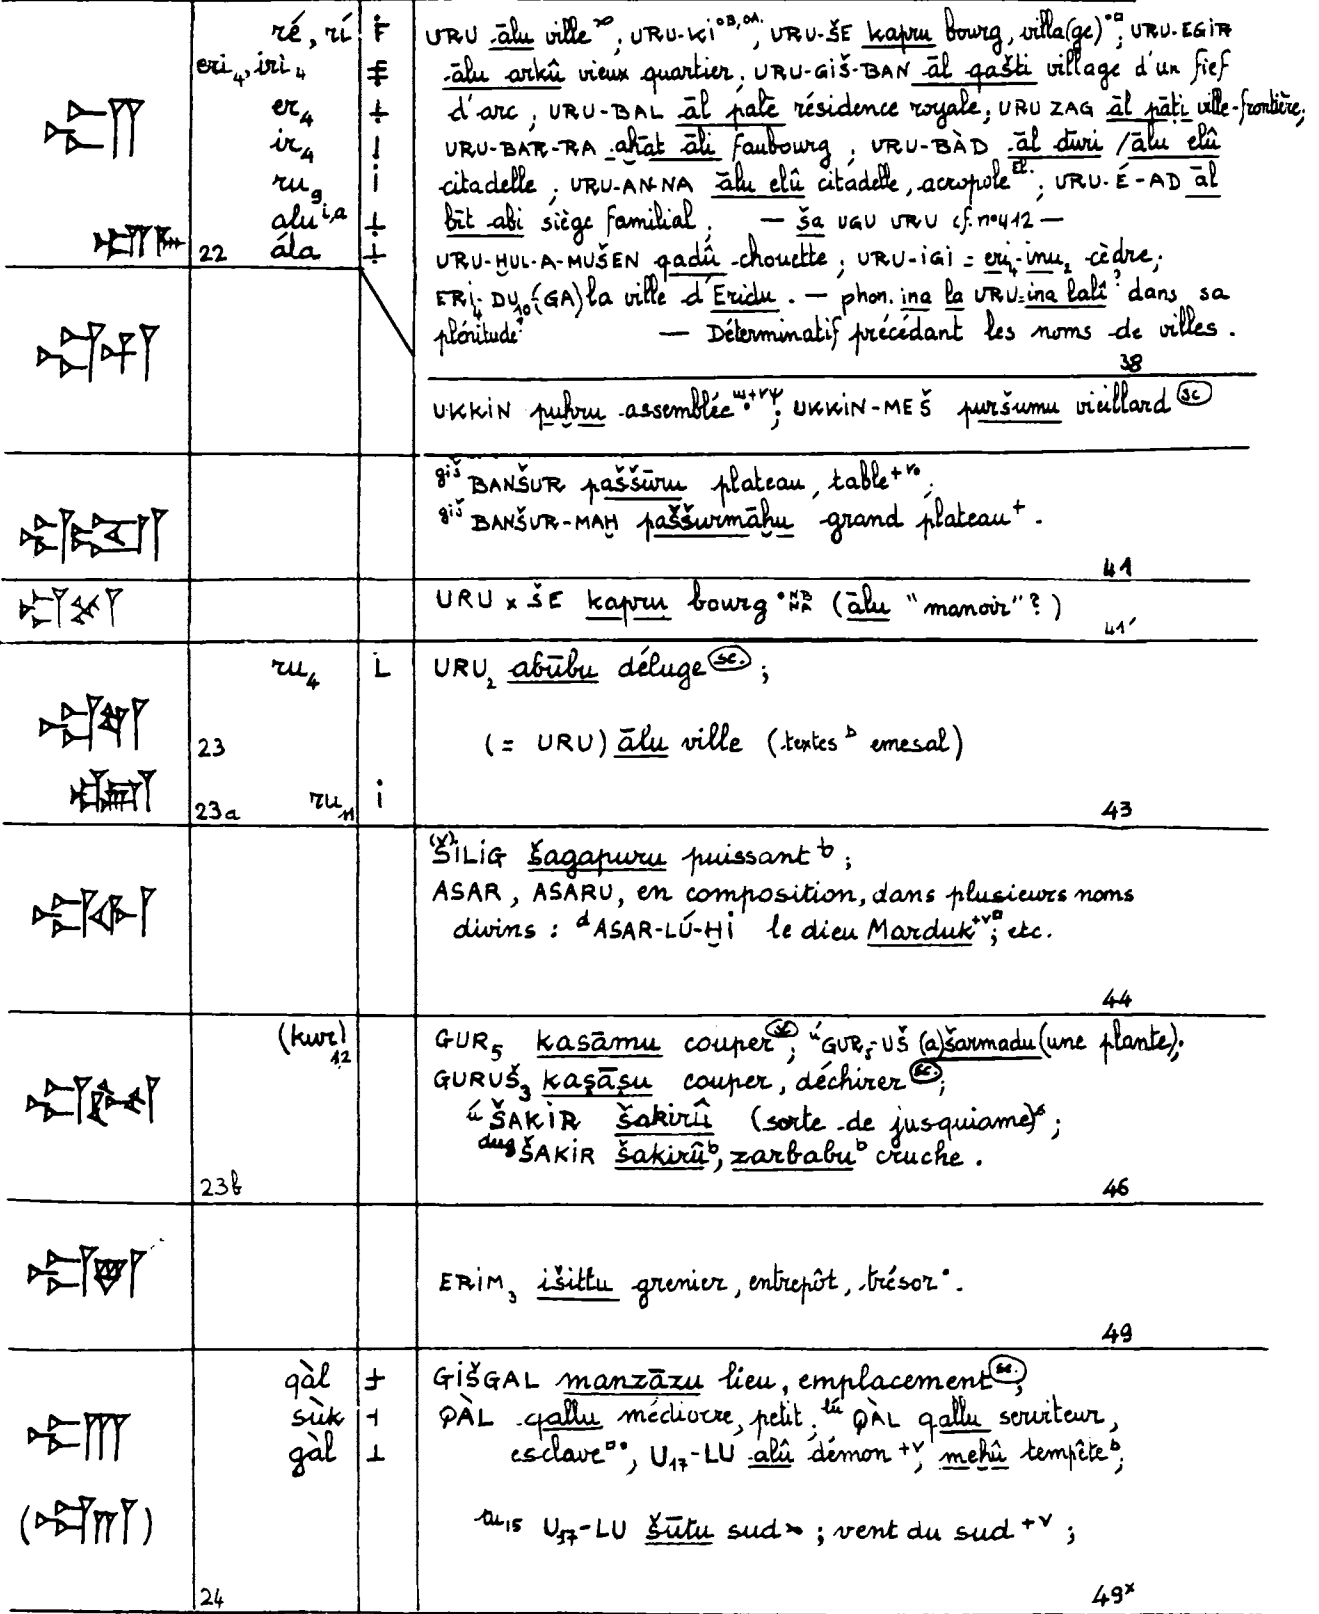 ré, rí URU ālu ville ; URU-KI OB, OA. ; URU-ŠE kapru bourg, villa(ge) ; URU-EGIR
eri₄, iri₄ ālu arkû vieux quartier ; URU-GIŠ-BAN āl qašti village d'un fief
er₄ d'arc ; URU-BAL āl palê résidence royale ; URU ZAG āl pāṭi ville-frontière ;
ir₄ URU-BAR-RA aḫat āli faubourg ; URU-BÀD āl dūri / ālu elû
ru₉ citadelle ; URU-AN-NA ālu elû citadelle, acropole El. ; URU-É-AD āl
alu i,a bīt abi siège familial. — ša UGU URU cf. n° 412 —
22 ála URU-ḪUL-A-MUŠEN qadû chouette ; URU-IGI = eri₄-inu₂ cèdre ;
ERI₄-DU₁₀(-GA) la ville d'Eridu. — phon. ina la URU = ina lalî ? dans sa
plénitude — Déterminatif précédant les noms de villes.
38
UKKIN puḫru assemblée ; UKKIN-MEŠ puršumu vieillard sc
giš BANŠUR paššūru plateau, table + v ;
giš BANŠUR-MAḪ paššurmāḫu grand plateau + .
41
URU x ŠE kapru bourg NB NA (ālu "manoir" ?)
41'
ru₄ i URU₂ abūbu déluge sc. ;
23 (= URU) ālu ville (textes b emesal)
23a ru₁₁ i 43
(v) ŠILIG šagapuru puissant b ;
ASAR, ASARU, en composition, dans plusieurs noms
divins : d ASAR-LÚ-ḪI le dieu Marduk +v ; etc.
44
(kur)₁₂ GUR₅ kasāmu couper sc ; ú GUR₅-UŠ (a)šarmadu (une plante) ;
GURUŠ₃ kaṣāṣu couper, déchirer sc. ;
ú ŠAKIR šakirû (sorte de jusquiame) s ;
dug ŠAKIR šakirû b, zarbabu b cruche .
23b 46
ERIM₃ išittu grenier, entrepôt, trésor .
49
qàl GIŠGAL manzāzu lieu, emplacement sc. ;
sùk QÀL qallu médiocre, petit, lú QÀL qallu serviteur,
gàl esclave , U₁₇-LU alû démon +v, meḫû tempête b ;
tu₁₅ U₁₇-LU šūtu sud ; vent du sud +v ;
24 49x